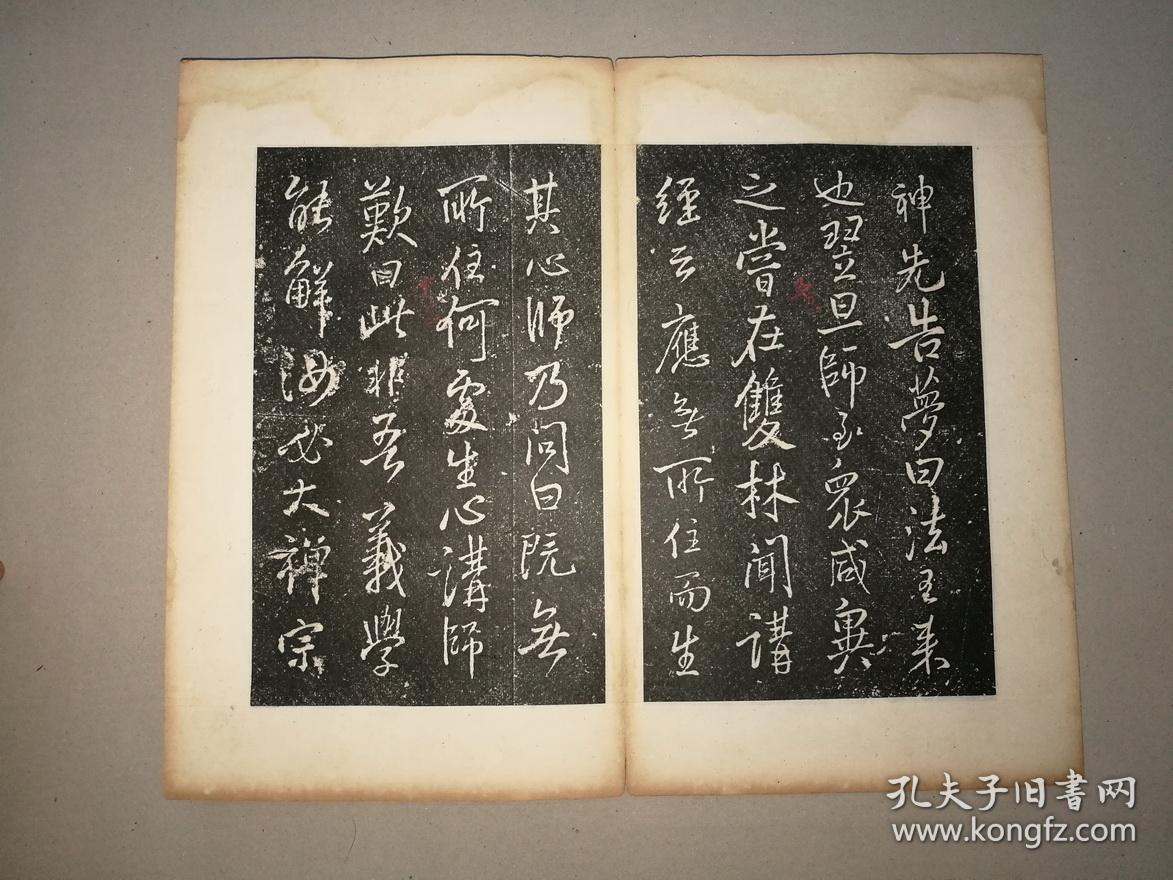 神先告夢曰法王來
也翌旦師至衆咸異
之嘗在雙林聞講
經云應無所住而生
其心師乃问曰既無
所住何處生心講師
歎曰此非吾義學
能解汝必大禪宗
孔夫子旧书网
www.kongfz.com